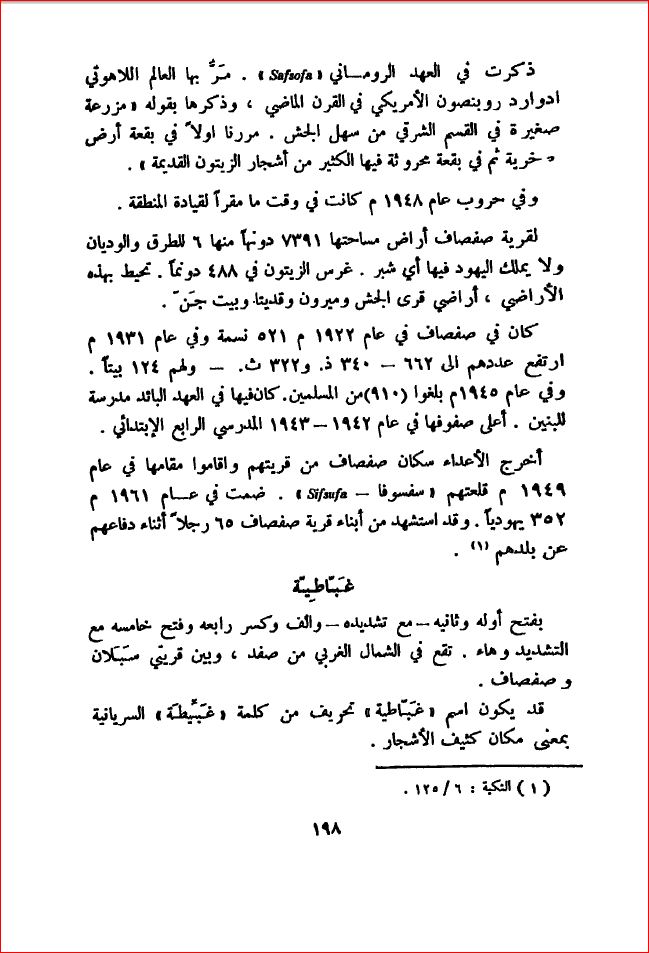 ذكرت في العهد الرومـاني « Safsofa » . مَرَّ بها العالم اللاهوتي
ادوارد روبنصون الأمريكي في القرن الماضي ، وذكرها بقوله « مزرعة
صغيرة في القسم الشرقي من سهل الجش . مررنا اولاً في بقعة أرض
خربة ثم في بقعة محروثة فيها الكثير من أشجار الزيتون القديمة » .
وفي حروب عام ١٩٤٨ م كانت في وقت ما مقراً لقيادة المنطقة .
لقرية صفصاف أراض مساحتها ٧٣٩١ دونماً منها ٦ للطرق والوديان
ولا يملك اليهود فيها أي شبر . غرس الزيتون في ٤٨٨ دونماً . تحيط بهذه
الأراضي ، أراضي قرى الجش وميرون وقديتا وبيت جَنّ .
كان في صفصاف في عام ١٩٢٢ م ٥٢١ نسمة وفي عام ١٩٣١ م
ارتفع عددهم الى ٦٦٢ — ٣٤٠ ذ. و٣٢٢ ث. — ولهم ١٢٤ بيتاً .
وفي عام ١٩٤٥م بلغوا (٩١٠) من المسلمين. كان فيها في العهد البائد مدرسة
للبنين . أعلى صفوفها في عام ١٩٤٢ – ١٩٤٣ المدرسي الرابع الإبتدائي .
أخرج الأعداء سكان صفصاف من قريتهم واقاموا مقامها في عام
١٩٤٩ م قلعتهم « سفسوفا – Sifsufa » . ضمت في عـام ١٩٦١ م
٣٥٢ يهودياً . وقد استشهد من أبناء قرية صفصاف ٦٥ رجلاً أثناء دفاعهم
عن بلدهم (١) .
غَبّاطِيّة
بفتح أوله وثانيه – مع تشديده – والف وكسر رابعه وفتح خامسه مع
التشديد وهاء . تقع في الشمال الغربي من صفد ، وبين قريتي سَبَلان
وصفصاف .
قد يكون اسم « غَبّاطية » تحريف من كلمة « غَبِّيطَة » السريانية
بمعنى مكان كثيف الأشجار .
( ١ ) النكبة : ٦ / ١٢٥ .
١٩٨